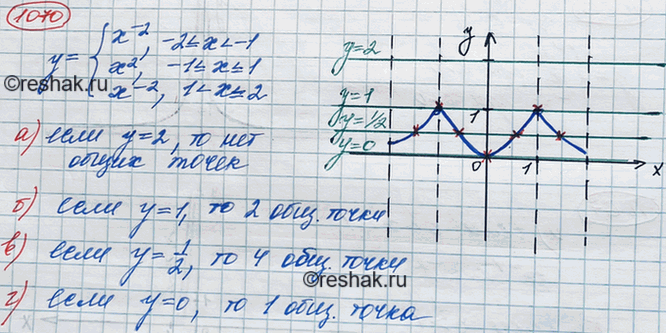 1070
y = { x⁻², -2≤x<-1
x², -1≤x≤1
x⁻², 1<x≤2
©reshak.ru
а) если y=2, то нет
общих точек
б) если y=1, то 2 общ. точки
в) если y=1/2, то 4 общ. точки
©reshak.ru
г) если y=0, то 1 общ. точка
y
y=2
y=1
1
y=1/2
y=0
0
1
x